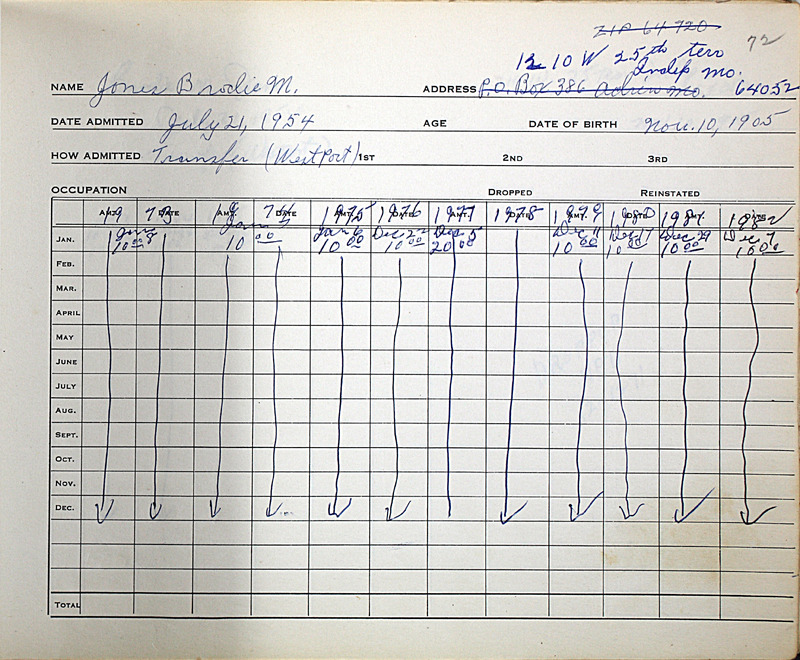 ZIP 64720
72
1210 W 25th terr
Indep mo.
NAME Jones Brodie M. ADDRESS P.O. Box 386 Adrian mo. 64052
DATE ADMITTED July 21, 1954 AGE DATE OF BIRTH Nov. 10, 1905
HOW ADMITTED Transfer (West Port) 1ST 2ND 3RD
OCCUPATION DROPPED REINSTATED
AMT. DATE AMT. DATE AMT. DATE AMT. DATE AMT. DATE AMT. DATE
19 73 19 74 1975 1976 1977 1978 1979 1980 1981 1982
JAN. Jan 8 Jan 6 Dec 22 Dec 5 Dec 11 Dec 17 Dec 29 Dec 7
10 00 10 00 10 00 10 00 20 00 10 00 10 00 10 00
FEB.
MAR.
APRIL
MAY
JUNE
JULY
AUG.
SEPT.
OCT.
NOV.
DEC.
TOTAL